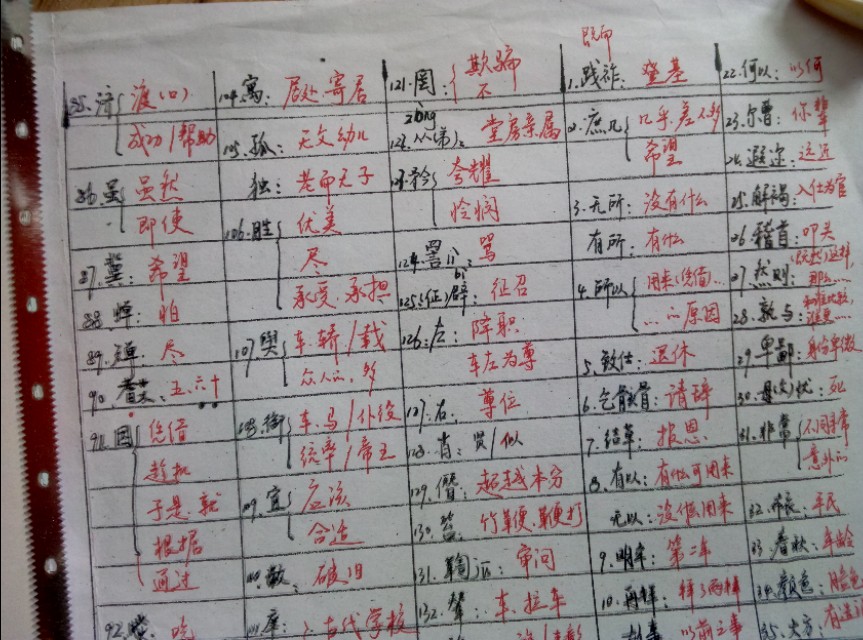 85.济 渡(口)
成功/帮助
86.虽 虽然
即使
87.冀:希望
88.惮:怕
89.殚:尽
90.耆艾:五、六十
91.因 凭借
趁机
于是、就
根据
通过
104.寓:居处、寄居
105.孤:无父幼儿
独:老而无子
106.胜 优美
尽
承受、承担
107.舆 车、轿/载
众人的,多
108.御 车、马/仆役
统率/帝王
109.宜 应该
合适
110.敝:破旧
111.庠:古代学校
121.罔:欺骗
不
zòng
122.从(弟):堂房亲属
123.矜 夸耀
怜悯
124.詈 lì:骂
bì
125.(征)辟:征召
126.左:降职
车左为尊
127.右:尊位
128.肖:贤/似
129.僭:超越本分
130.笞:竹鞭、鞭打
131.鞫讯:审问
132.辇:车、拉车
1.践祚:登基
2.庶几 几乎,差不多
希望
3.无所:没有什么
有所:有什么
4.所以 用来、凭借…
…的原因
5.致仕:退休
6.乞骸骨:请辞
7.结草:报恩
8.有以:有什么可用来
无以:没什么用来
9.明年:第二年
10.再拜:拜了两拜
22.何以:以何
23.尔曹:你辈
24.遐迩:远近
25.解褐:入仕为官
26.稽首:叩头
27.然则:(既然)这样,
那么……
28.孰与:和谁比较,
29.卑鄙:身份卑微
31.非常 不同寻常
意外的
32.布衣:平民
33.春秋:年龄
34.颜色:脸色
35.大方:有道